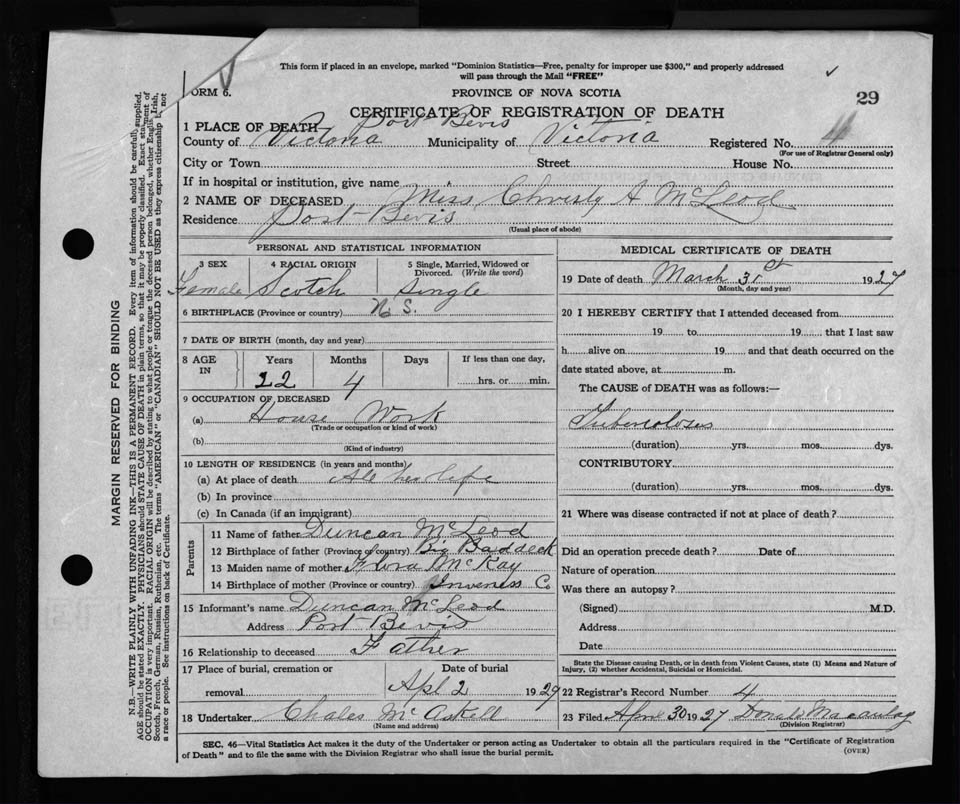 This form if placed in an envelope, marked "Dominion Statistics—Free, penalty for improper use $300," and properly addressed
will pass through the Mail "FREE"
ORM 6.
PROVINCE OF NOVA SCOTIA
29
CERTIFICATE OF REGISTRATION OF DEATH
1 PLACE OF DEATH Port Bevis
County of Victoria Municipality of Victoria Registered No. 4
(For use of Registrar General only)
City or Town Street House No.
If in hospital or institution, give name
2 NAME OF DECEASED Miss Christy A McLeod
Residence Port Bevis
(Usual place of abode)
PERSONAL AND STATISTICAL INFORMATION
3 SEX 4 RACIAL ORIGIN 5 Single, Married, Widowed or Divorced. (Write the word)
Female Scotch Single
6 BIRTHPLACE (Province or country) N S.
7 DATE OF BIRTH (month, day and year)
8 AGE IN Years Months Days If less than one day,
22 4 hrs. or min.
9 OCCUPATION OF DECEASED
(a) House Work
(Trade or occupation or kind of work)
(b)
(Kind of industry)
10 LENGTH OF RESIDENCE (in years and months)
(a) At place of death All her life
(b) In province
(c) In Canada (if an immigrant)
Parents
11 Name of father Duncan McLeod
12 Birthplace of father (Province or country) Big Baddeck
13 Maiden name of mother Flora McKay
14 Birthplace of mother (Province or country) Inverness Co
15 Informant's name Duncan McLeod
Address Port Bevis
16 Relationship to deceased Father
17 Place of burial, cremation or removal Date of burial
Apl 2 1929
18 Undertaker Chales McAskell
(Name and address)
MEDICAL CERTIFICATE OF DEATH
19 Date of death March 31st 1927
(Month, day and year)
20 I HEREBY CERTIFY that I attended deceased from
19 to 19 that I last saw
h alive on 19 and that death occurred on the
date stated above, at m.
The CAUSE of DEATH was as follows:—
Tuberculosus
(duration) yrs. mos. dys.
CONTRIBUTORY
(duration) yrs. mos. dys.
21 Where was disease contracted if not at place of death?
Did an operation precede death? Date of
Nature of operation
Was there an autopsy?
(Signed) M.D.
Address
Date
State the Disease causing Death, or in death from Violent Causes, state (1) Means and Nature of
Injury, (2) whether Accidental, Suicidal or Homicidal.
22 Registrar's Record Number 4
23 Filed April 30 1927 Donald Macaulay
(Division Registrar)
SEC. 46—Vital Statistics Act makes it the duty of the Undertaker or person acting as Undertaker to obtain all the particulars required in the "Certificate of Registration
of Death" and to file the same with the Division Registrar who shall issue the burial permit.
(OVER)
MARGIN RESERVED FOR BINDING
N.B.—WRITE PLAINLY WITH UNFADING INK—THIS IS A PERMANENT RECORD. Every item of information should be carefully supplied.
AGE should be stated EXACTLY. PHYSICIANS should STATE CAUSE OF DEATH in plain terms, so that it may be properly classified. Exact statement of
OCCUPATION is very important. RACIAL ORIGIN will be described by stating to what people or tongue the deceased person belonged, whether English, Irish,
Scotch, French, German, Russian, Ruthenian, etc. The terms "AMERICAN" or "CANADIAN" SHOULD NOT BE USED as they express citizenship not
a race or people. See instructions on back of Certificate.